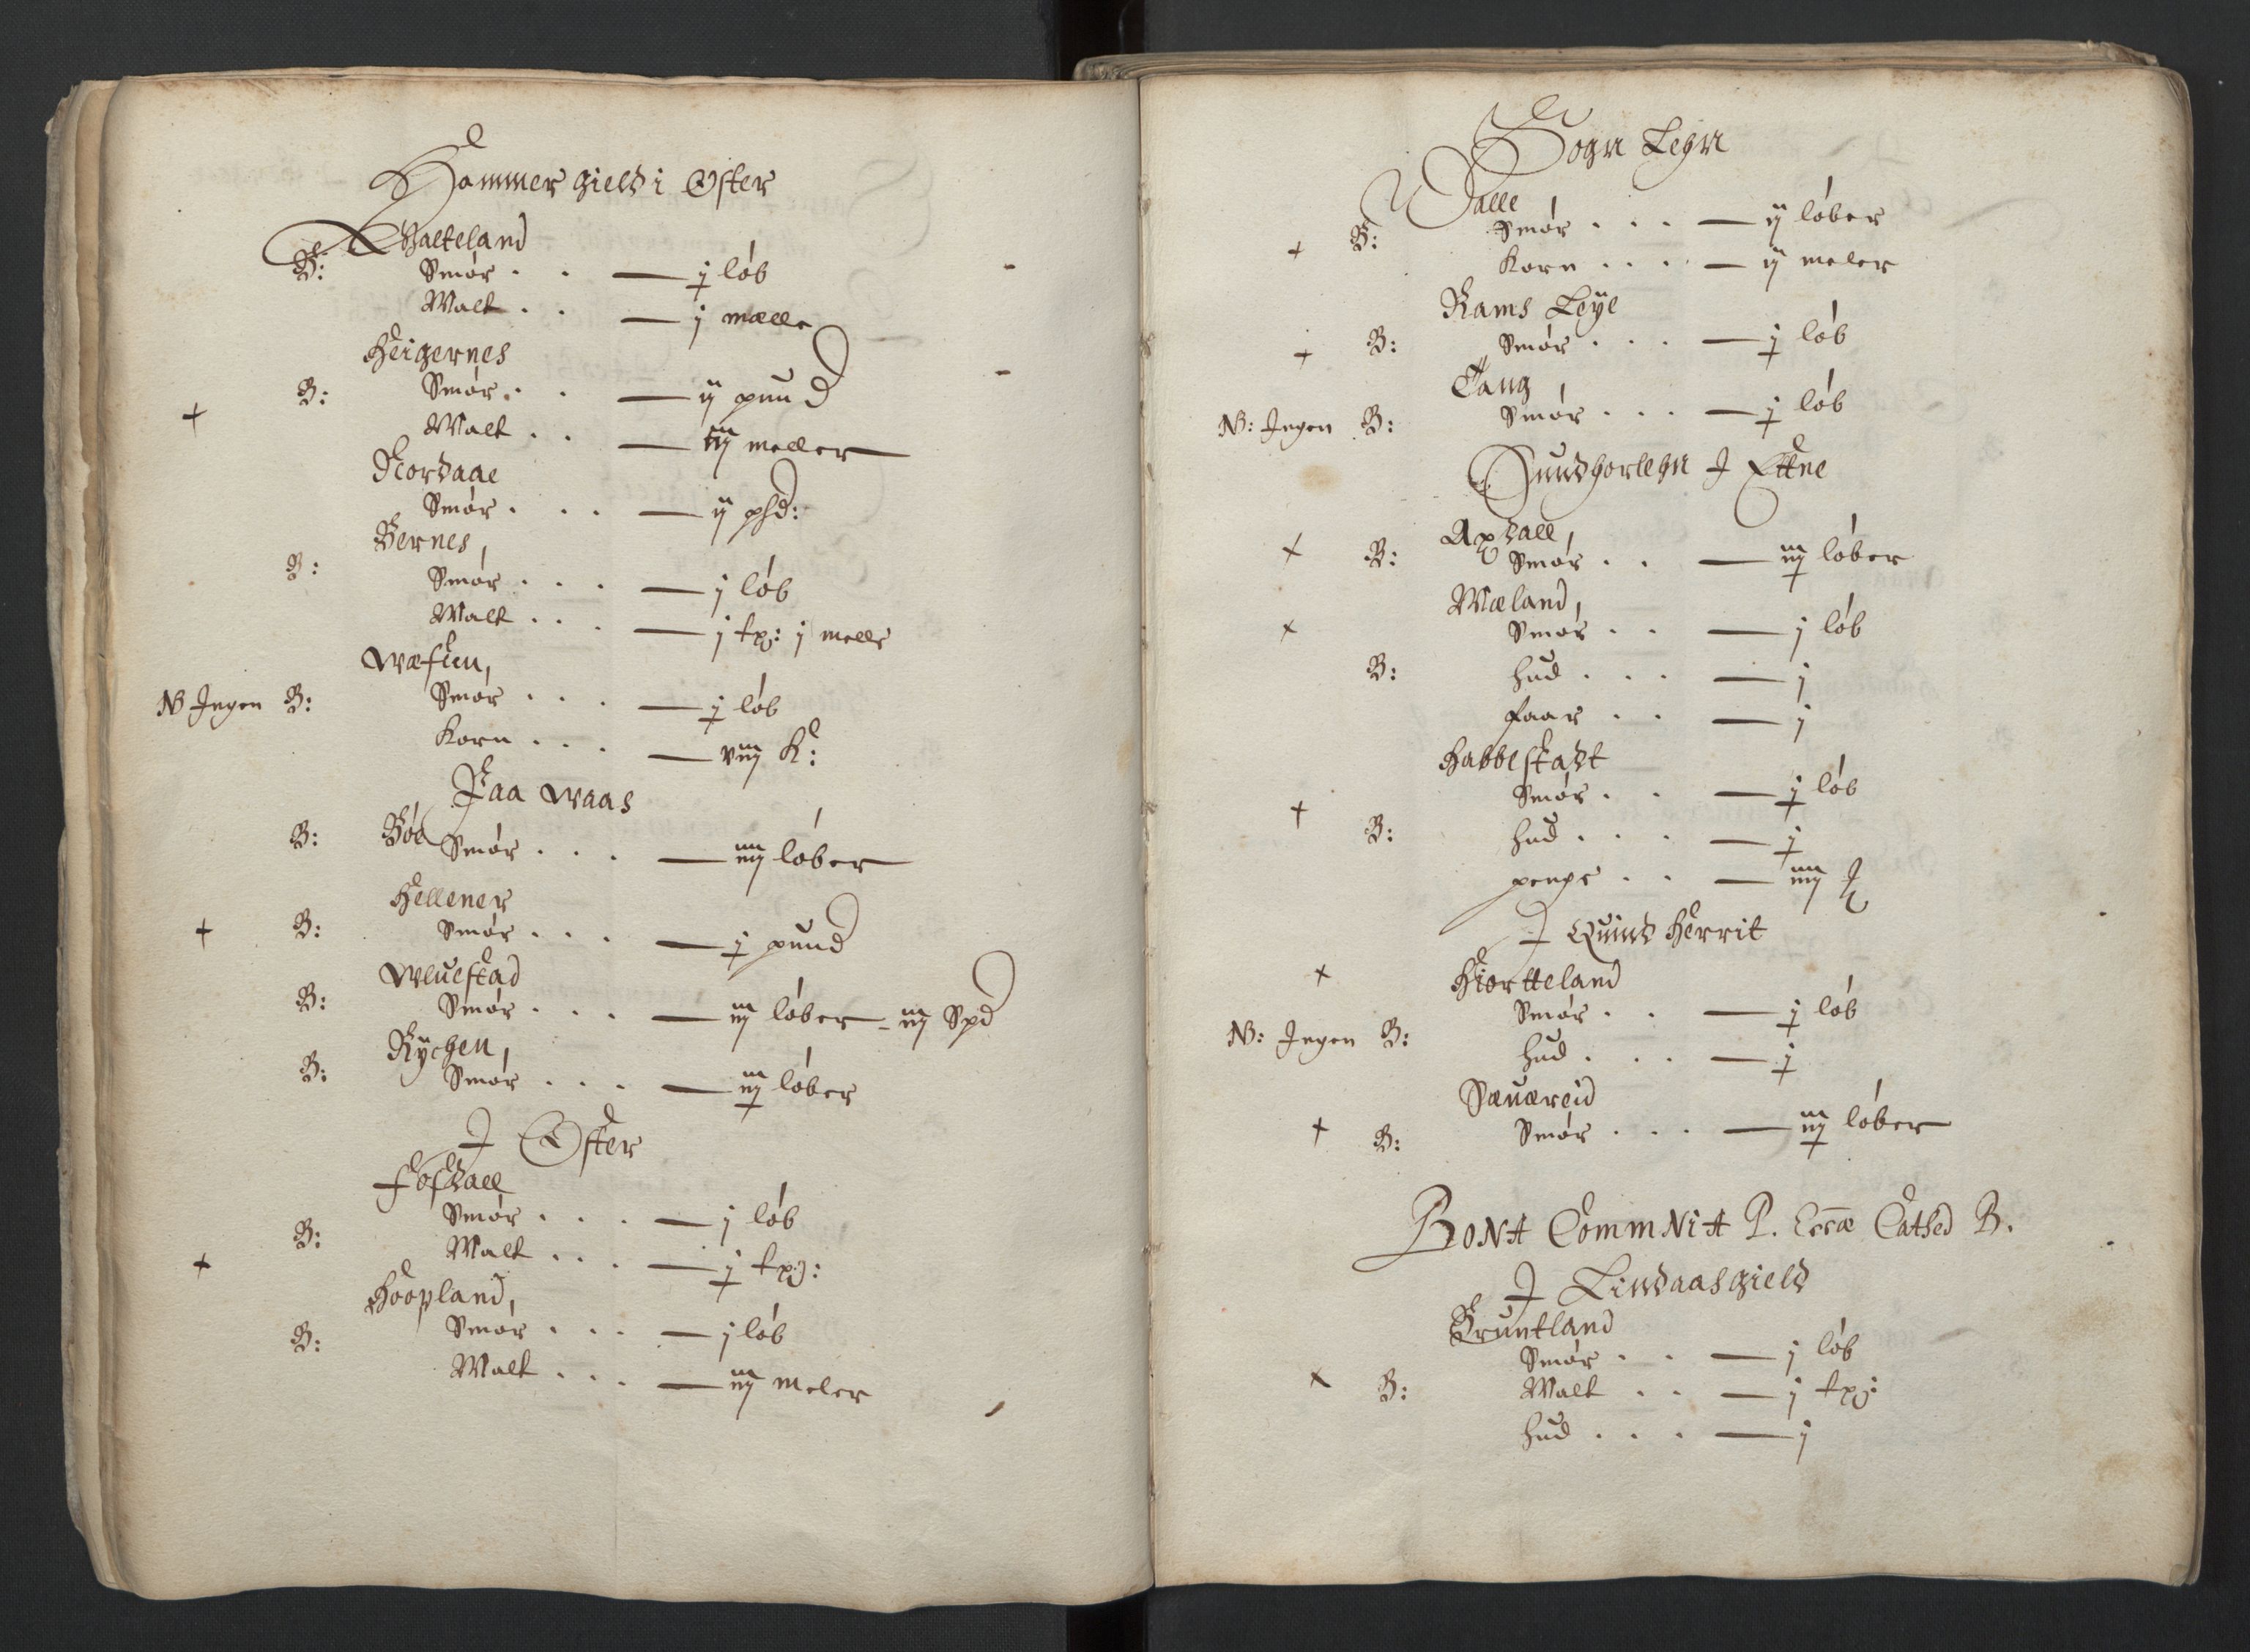 Hammer gield i Oster
Dalleland
B: Smør . . — j løb
Malt . . — j mælle
Heigernes
+ B: Smør . . — ij puud
Malt . . — iij meller
Nordaae
Smør . . . — ij pd:
Bernes,
B: Smør . . . — j løb
Malt . . . — j tp: j melle
Wæsuu,
NB Ingen B: Smør . . . — j løb
Korn . . . — viij K:
Paa Waas
B: Bøe Smør . . . — iiij løber
Hellener
+ B: Smør . . . — j puud
Wluestad
B: Smør . . . — iij løber - iij Spd
Rÿchen,
B: Smør . . . — iij løber
I Oster
Fosdall
B: Smør . . . — j løb
+ Malt . . . — j tp:
Hoopland,
B: Smør . . . — j løb
Malt . . . — iij meler
Sogn Legn
Dalle
+ B: Smør . . . — ij løber
Korn . . . — ij meler
Rams Leÿe
+ B: Smør . . . — j løb
Tang,
NB: Ingen B: Smør . . . — j løb
Sundhorlehn I Ettne
Axdall,
+ B: Smør . . — iij løber
Mæland,
+ Smør . . — j løb
B: hud . . . — j
faar . . — j
Habbestadt
+ Smør . . — j løb
B: hud . . . — j
penge . . — iiij
I Quind Herrit
+ Hiortteland
Smør . . — j løb
NB: Ingen B: hud . . . — j
Sæuæreid
+ B: Smør . . . — iij løber
BONA CommNiA P. Eccæ Cathed B.
I Lindaas gield
Gruntland
Smør . . — j løb
+ B: Malt . . — j tp:
hud . . . — j